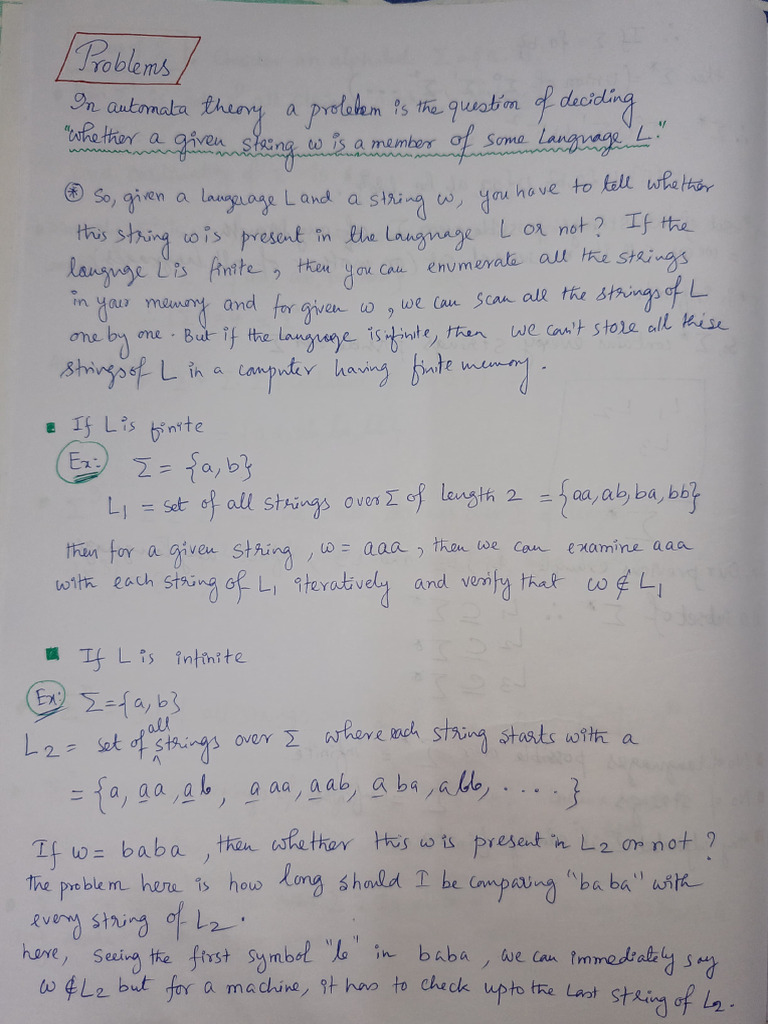 Problems
In automata theory a problem is the question of deciding
"whether a given string w is a member of some Language L."
⊛ So, given a language L and a string w, you have to tell whether
this string w is present in the Language L or not? If the
languge L is finite, then you can enumerate all the strings
in your memory and for given w, we can scan all the strings of L
one by one. But if the Language is infinite, then we can't store all these
strings of L in a computer having finite memory.
▪ If L is finite
Ex: Σ = {a, b}
L₁ = set of all strings over Σ of length 2 = {aa, ab, ba, bb}
then for a given string, w = aaa, then we can examine aaa
with each string of L₁ iteratively and verify that w ∉ L₁
▪ If L is infinite
Ex: Σ = {a, b}
L₂ = set of all strings over Σ where each string starts with a
= {a, aa, ab, aaa, aab, aba, abb, ....}
If w = baba, then whether this w is present in L₂ or not?
The problem here is how long should I be comparing "baba" with
every string of L₂.
here, seeing the first symbol "b" in baba, we can immediately say
w ∉ L₂ but for a machine, it has to check upto the last string of L₂.